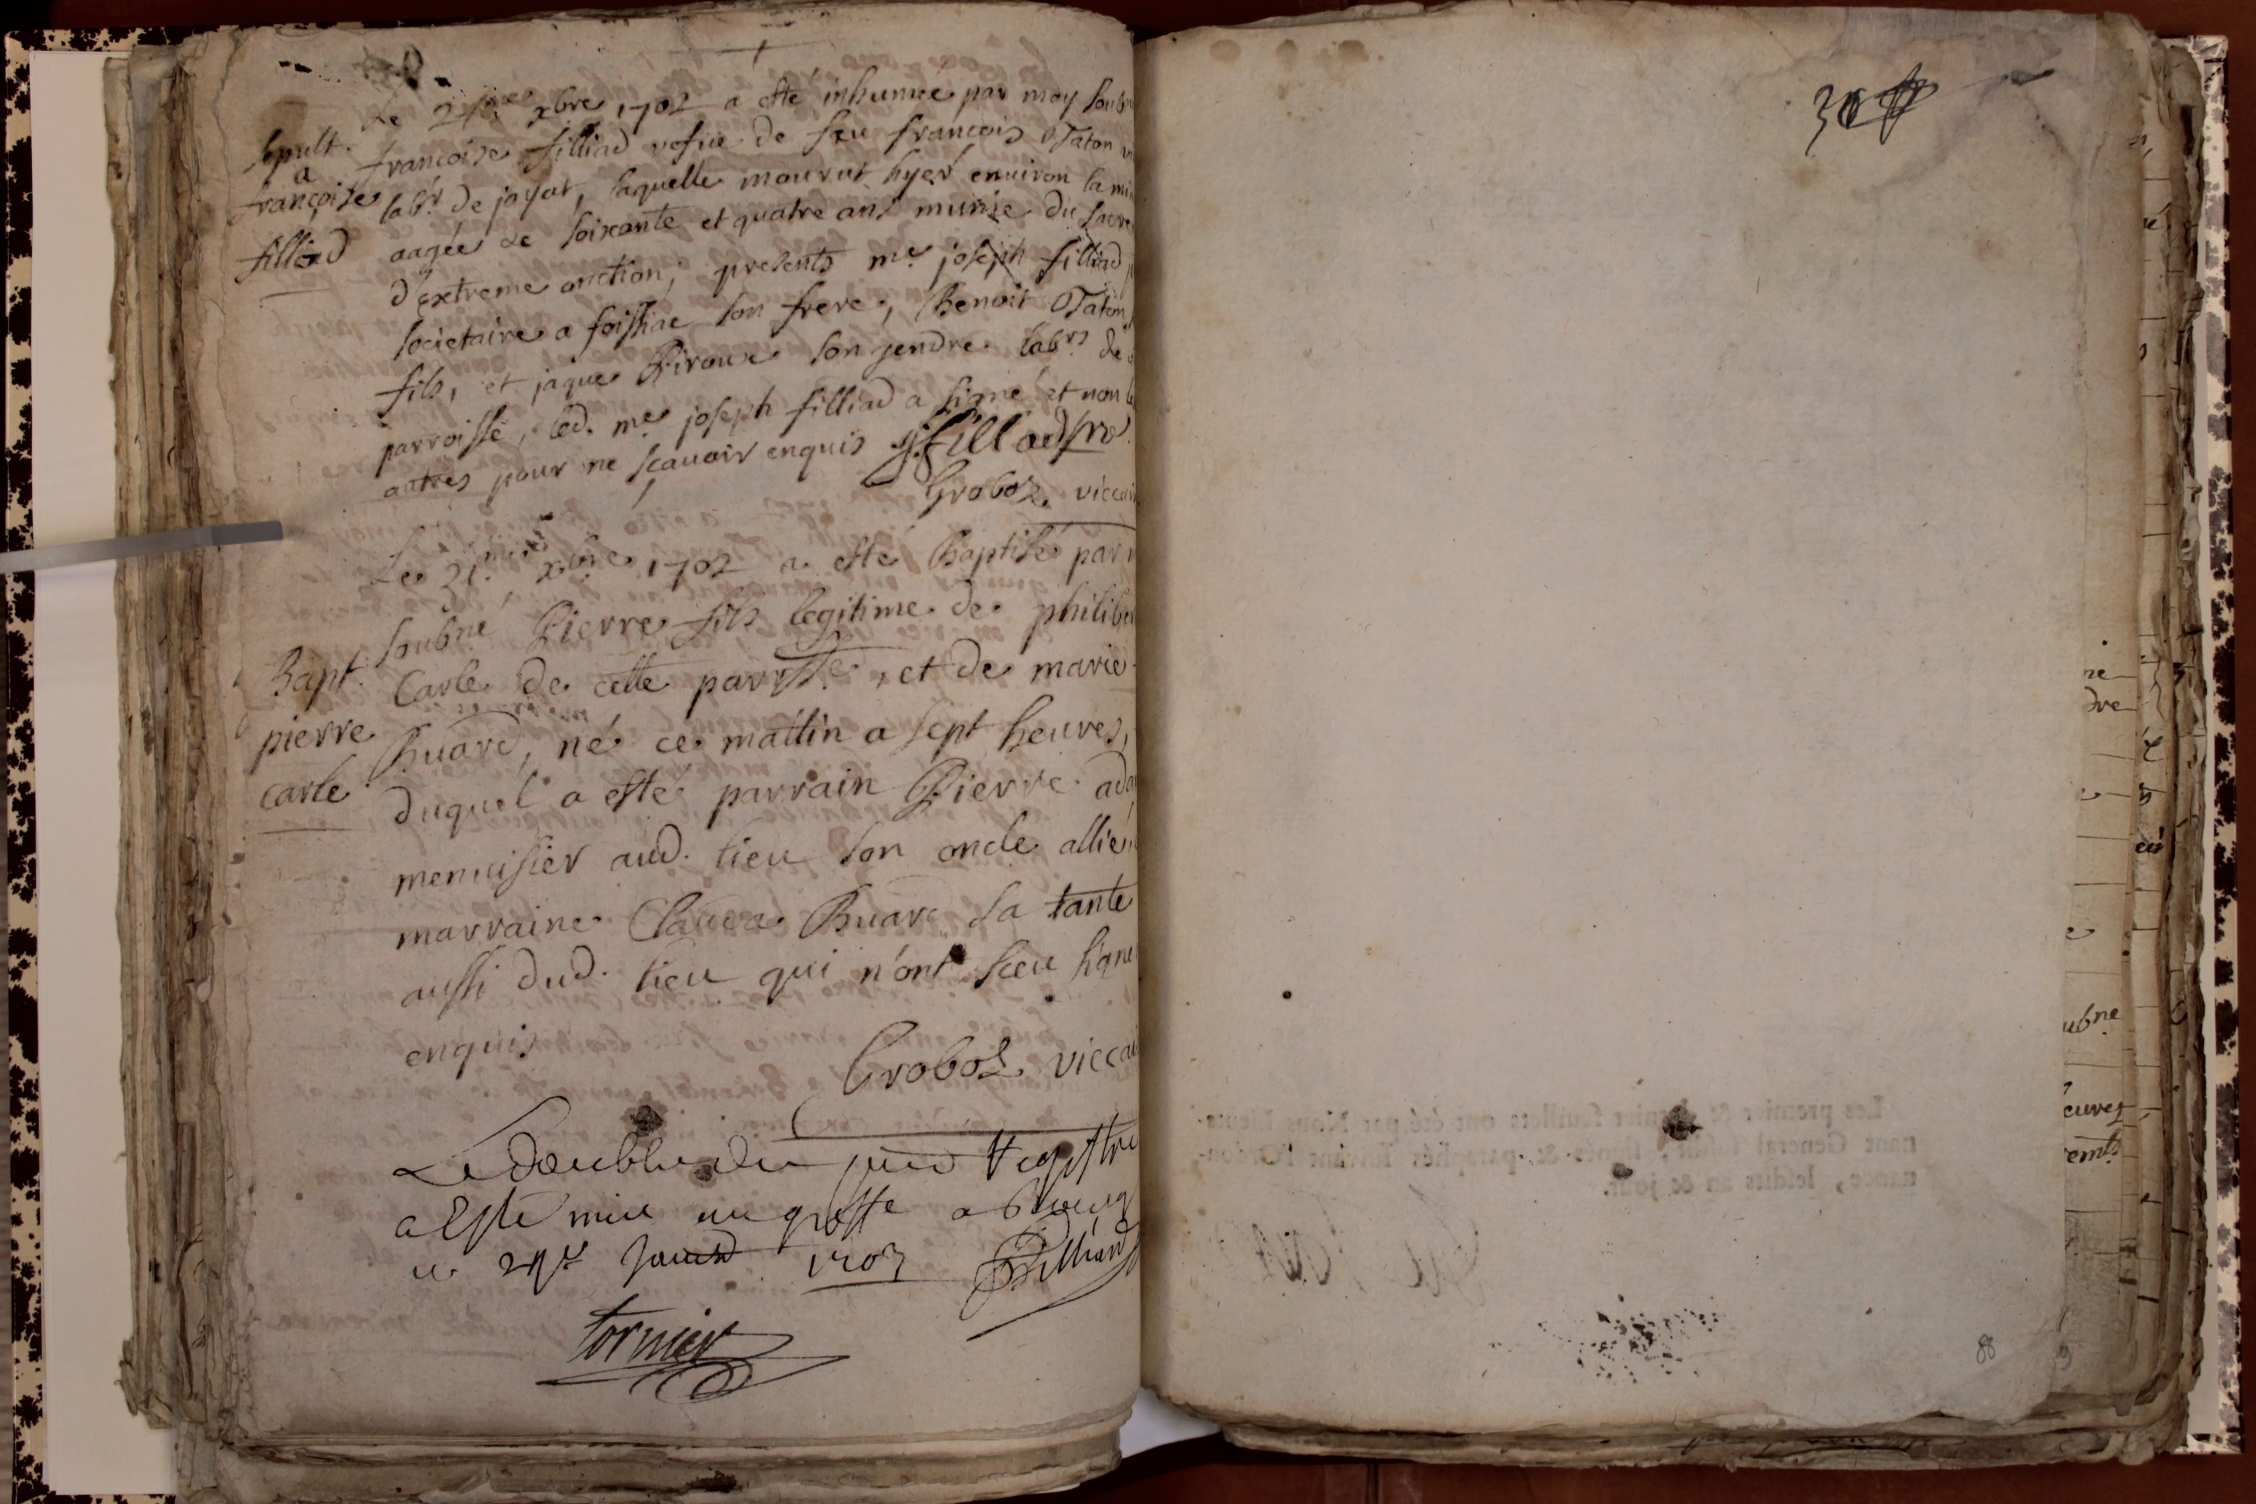 Le 24.me xbre 1702 a esté inhumée par moy soubs
françoise filliad vefue de feu françois Taton
labr. de jayat, laquelle mourut hyer enuiron la mi
aagée de soixante et quatre ans munie du sacre
d'extreme onction, presents mre joseph filliad
societaire a foissiac son frere, Benoit Taton
fils, et jaque Piroux son gendre labrs de
parroisse, led. mre joseph filliad a signé et non le
autres pour ne sçauoir enquis J filliad pre
Groboz viccai
sepult. a
françoise
filliad
Le 31.me xbre 1702 a esté Baptisé par
soubné Pierre fils legitime de philiber
Carle de cette parrsse, et de marie
Buard, né ce mattin a sept heures,
duquel a esté parrain Pierre ada
menuisier aud. lieu son oncle allié
marraine Clauda Buard sa tante
aussi dud. lieu qui n'ont sceu signe
enquis
Groboz viccai
Bapt.
pierre
carle
Le double du pnt registre
a esté mis au greffe a bourg
le Januier 1703 Filliard
tornier
Les premier & dernier feuillets ont été par Nous Lieute-
nant General susdit, signés & paraphés suivant l'Ordon-
nance, lesdits an & jour.
88